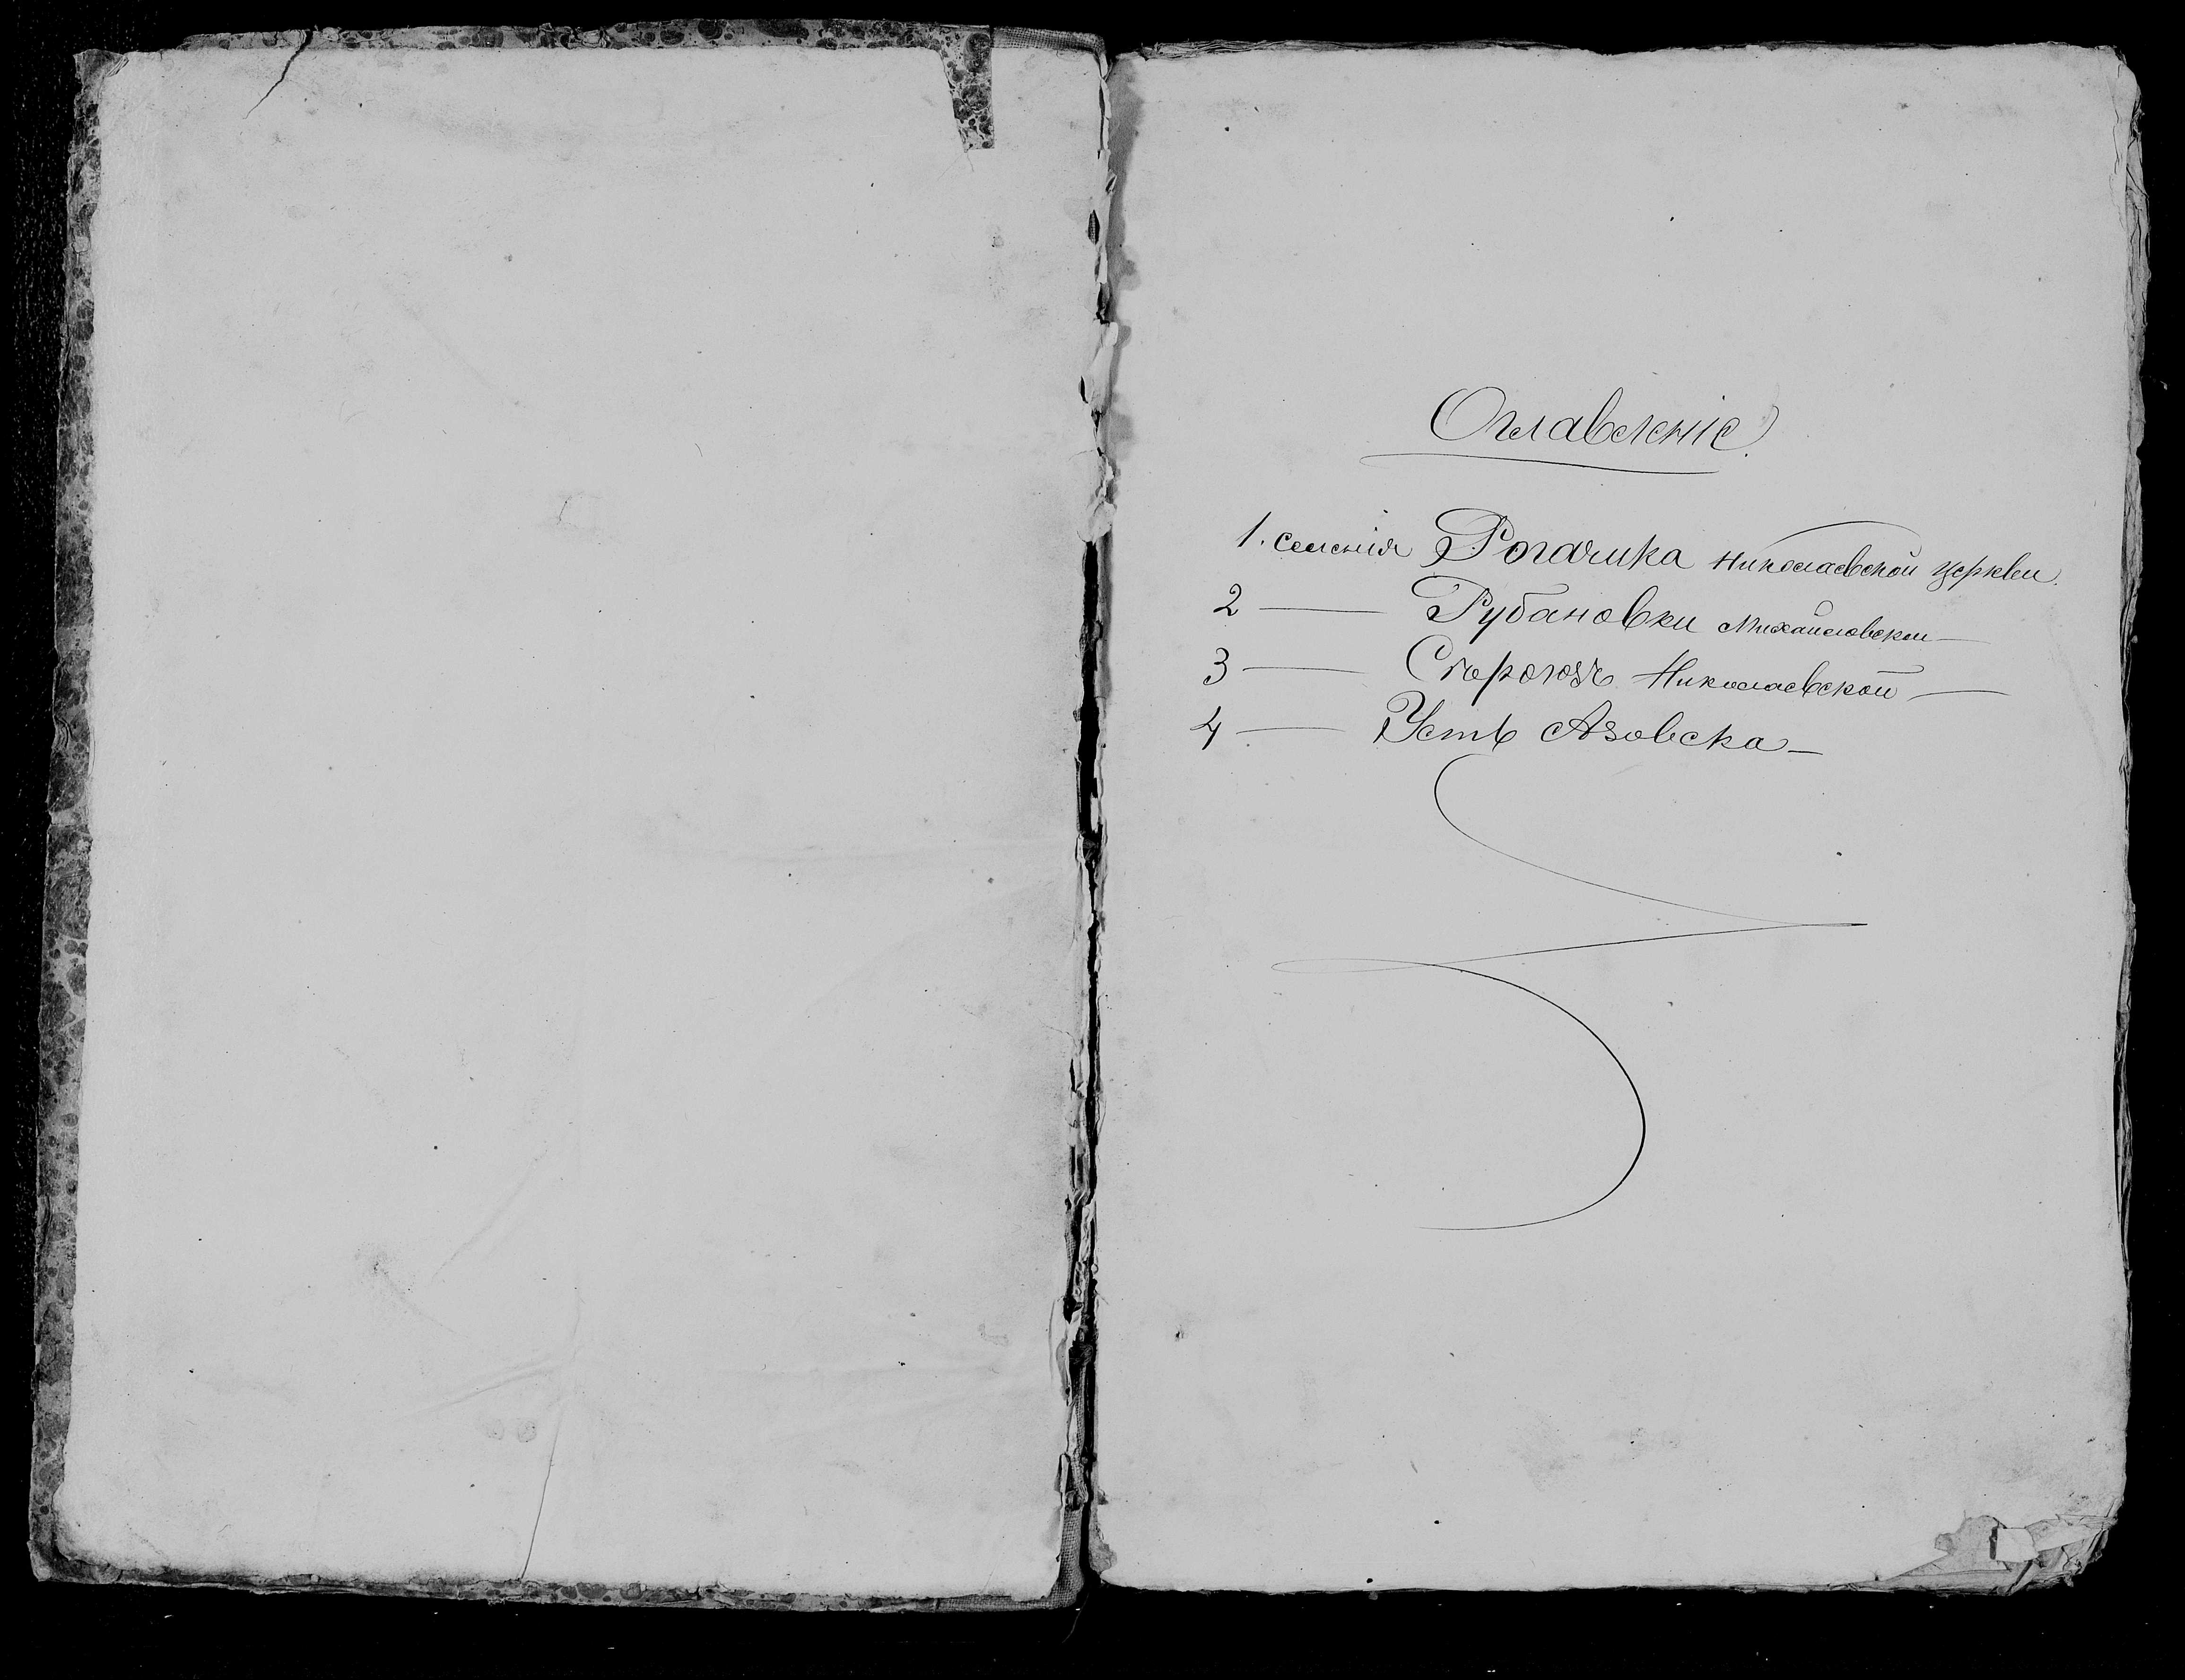 Оглавленіе.
1. селенія Рогачика Николаевской церкви.
2 — Рубановки Михайловской —
3 — Сѣрогозъ Николаевской —
4 — Усть Азовска —